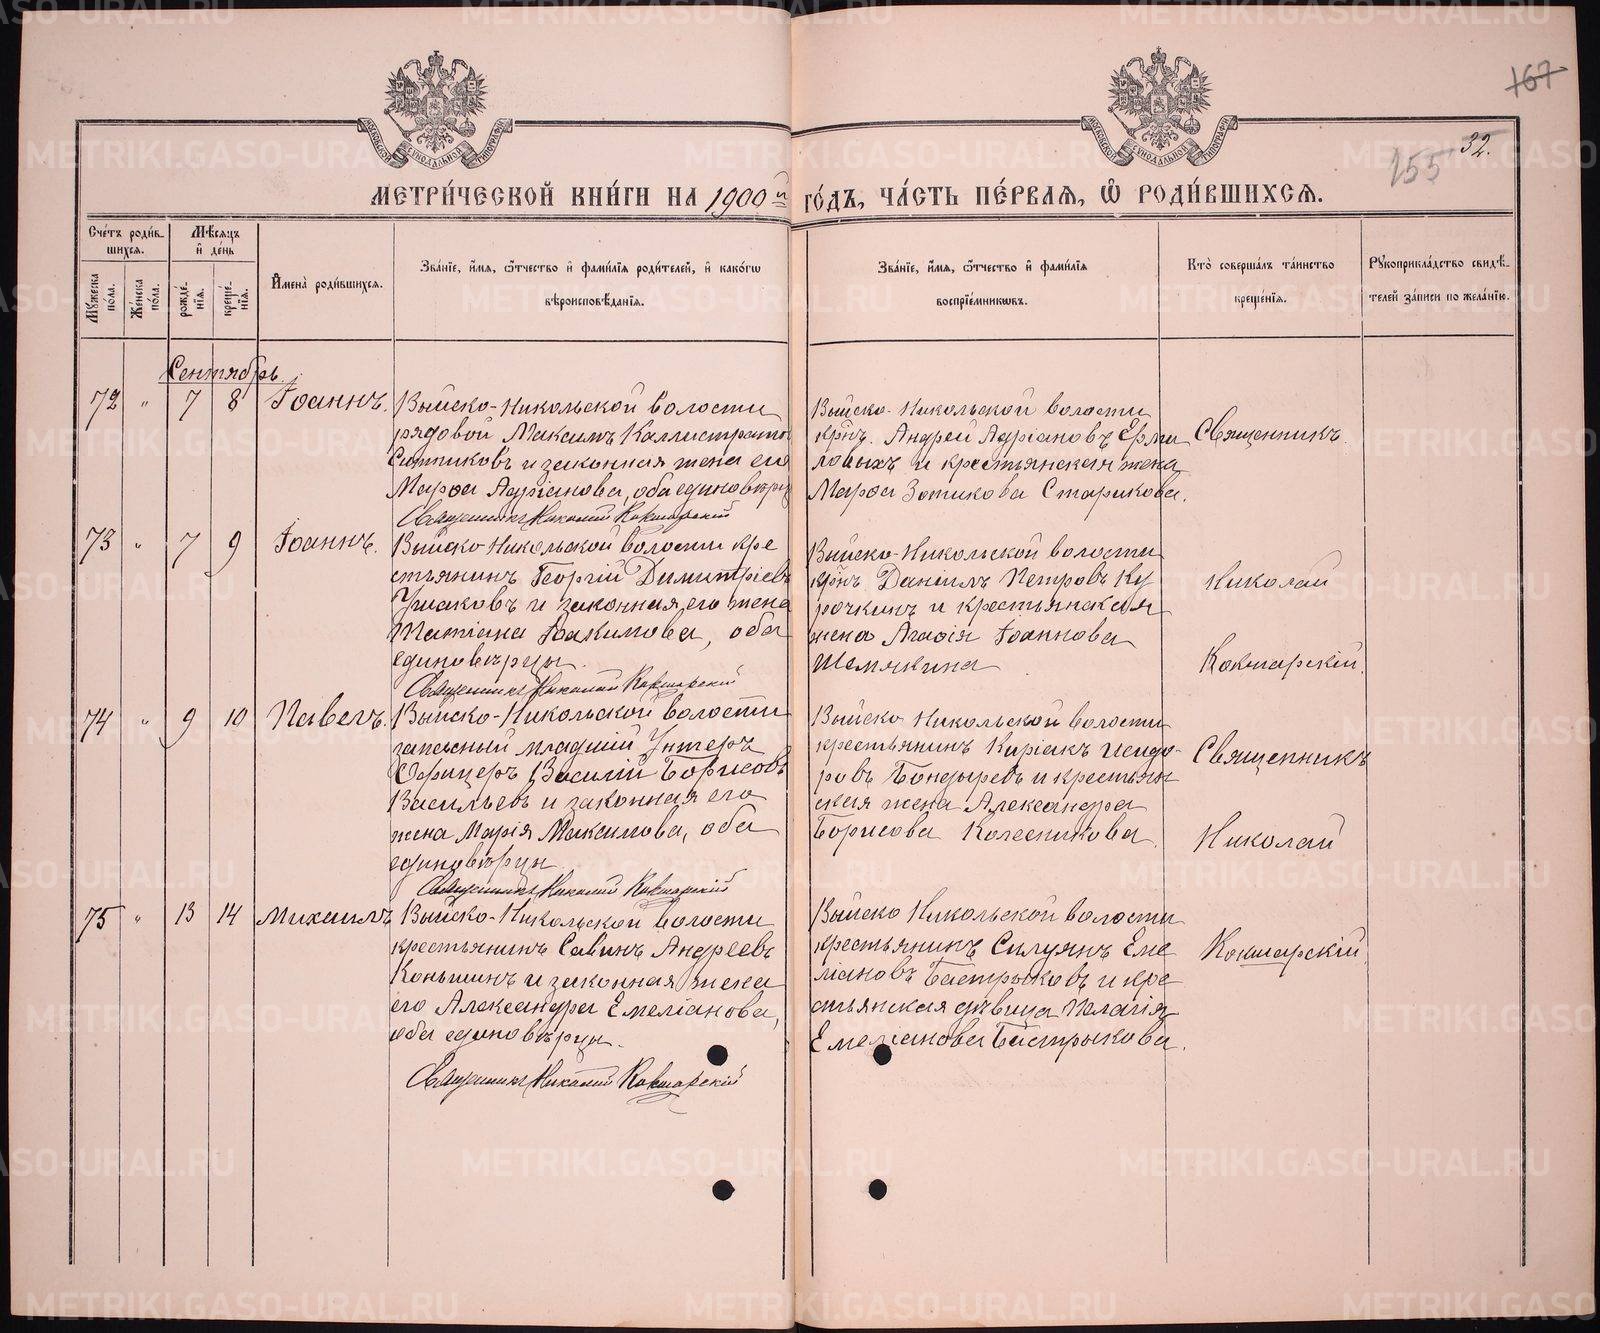 167
155
32.
МЕТРИ́ЧЕСКОЙ КНИ́ГИ НА 1900й ГО́ДЪ, ЧА́СТЬ ПЕ́РВАЯ, Ѡ РОДИ́ВШИХСЯ.
Сче́тъ роди́в-
шихся.
Му́жеска по́ла.
Же́нска по́ла.
Мѣ́сяцъ
и де́нь
рожде́-
нія.
креще́-
нія.
Имена̀ роди́вшихся.
Зва́ніе, и́мя, ѻ҆́тчество и фами́лія роди́телей, и како́гѡ
вѣроисповѣ́данія.
Зва́ніе, и́мя, ѻ҆́тчество и фами́лія
воспріе́мниковъ.
Кто̀ соверша́лъ та́инство
креще́нія.
Рукоприкла́дство свидѣ́-
телей за́писи по жела́нію.
Сентябрь.
72 " 7 8 Іоаннъ.
Выйско-Никольской волости
рядовой Максимъ Каллистрато
Ситниковъ и законная жена его
Марѳа Адріанова, оба единовѣрцы
Священникъ Николай Кокшарскій
Выйско-Никольской волости
крн. Андрей Адріановъ Ерми
ловыхъ и крестьянская жена
Марѳа Зотикова Старикова.
Священникъ
73 " 7 9 Іоаннъ.
Выйско-Никольской волости кре
стьянинъ Георгій Димитріевъ
Ушаковъ и законная его жена
Татіана Іоакимова, оба
единовѣрцы.
Священникъ Николай Кокшарскій
Выйско-Никольской волости
крн Даніилъ Петровъ Ку
рочкинъ и крестьянская
жена Агаѳія Іоаннова
Шемякина
Николай
Кокшарскій.
74 " 9 10 Павелъ.
Выйско-Никольской волости
запасный младшій Унтеръ
Офицеръ Василій Борисовъ
Васильевъ и законная его
жена Марія Максимова, оба
единовѣрцы
Священникъ Николай Кокшарскій
Выйско Никольской волости
крестьянинъ Киріакъ Исидо-
ровъ Бондыревъ и крестьян
ская жена Александра
Борисова Колесникова.
Священникъ
Николай
75 " 13 14 Михаилъ
Выйско-Никольской волости
крестьянинъ Савинъ Андреевъ
Коньшинъ и законная жена
его Александра Емеліанова,
оба единовѣрцы.
Священникъ Николай Кокшарскій
Выйско Никольской волости
крестьянинъ Силуянъ Еме
ліановъ Бастрыковъ и кре
стьянская дѣвица Пелагія
Емеліанова Бастрыкова.
Кокшарскій.
METRIKI.GASO-URAL.RU